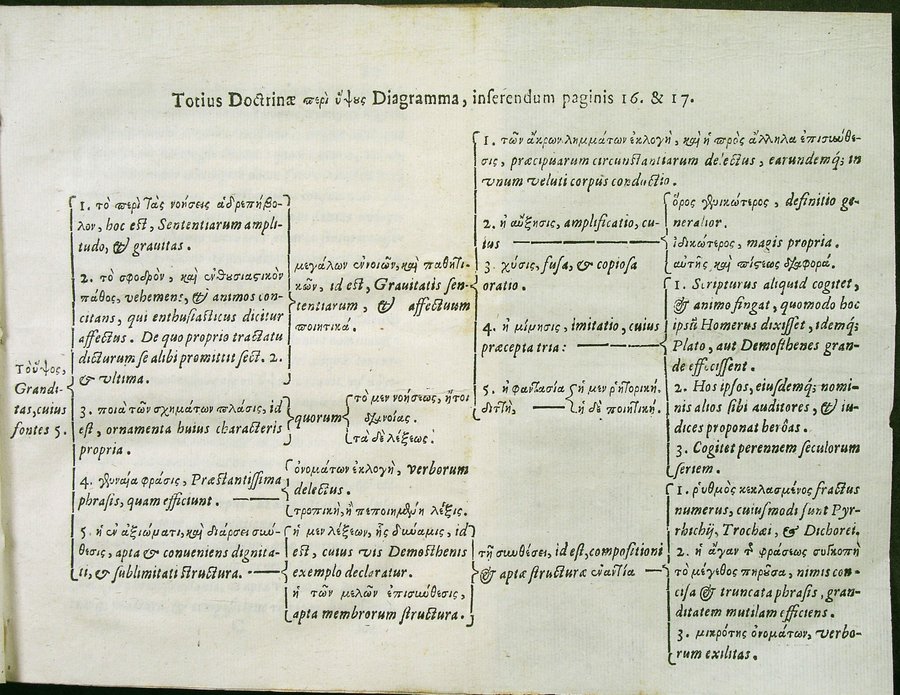 Totius Doctrinæ περὶ ὕψους Diagramma, inserendum paginis 16. & 17.
Τὸ ὕψος,
Grandi-
tas, cuius
fontes 5.
1. τὸ περὶ τὰς νοήσεις ἁδρεπήβο-
λον, hoc est, Sententiarum ampli-
tudo, & grauitas.
2. τὸ σφοδρὸν, καὶ ἐνθουσιαστικὸν
πάθος, vehemens, & animos con-
citans, qui enthusiasticus dicitur
affectus. De quo proprio tractatu
dicturum se alibi promittit sect. 2.
& vltima.
3. ποιὰ τῶν σχημάτων πλάσις, id
est, ornamenta huius characteris
propria.
4. γενναία φράσις, Præstantissima
phrasis, quam efficiunt.
5. ἡ ἐν ἀξιώματι, καὶ διάρσει σύν-
θεσις, apta & conueniens dignita-
ti, & sublimitati structura.
μεγάλων ἐννοιῶν, καὶ παθητι-
κῶν, id est, Grauitatis sen-
tentiarum, & affectuum
ποιητικά.
quorum
τὸ μεν νοήσεως, ἤτοι
διανοίας.
τὰ δὲ λέξεως.
ὀνομάτων ἐκλογὴ, verborum
delectus.
τροπικὴ, ἢ πεποιημένη λέξις.
ἡ μεν λέξεων, ἧς δύναμις, id
est, cuius vis Demosthenis
exemplo declaratur.
ἡ τῶν μελῶν ἐπισύνθεσις,
apta membrorum structura.
1. τῶν ἄκρων λημμάτων ἐκλογὴ, καὶ ἡ πρὸς ἄλληλα ἐπισύνθε-
σις, præcipuarum circunstantiarum delectus, earundemq; in
vnum veluti corpus conductio.
2. ἡ αὔξησις, amplificatio, cu-
ius
ὅρος γενικώτερος, definitio ge-
neralior.
ἰδικώτερος, magis propria.
αὐτῆς καὶ πίστεως διαφορά.
3. χύσις, fusa, & copiosa
oratio.
4. ἡ μίμησις, imitatio, cuius
præcepta tria:
1. Scripturus aliquid cogitet,
& animo fingat, quomodo hoc
ipsũ Homerus dixisset, idemq;
Plato, aut Demosthenes gran-
de effecissent.
2. Hos ipsos, eiusdemq; nomi-
nis alios sibi auditores, & iu-
dices proponat herôas.
3. Cogitet perennem seculorum
seriem.
5. ἡ φαντασία
διττὴ,
ἡ μεν ῥητορική.
ἡ δὲ ποιητική.
τῇ συνθέσει, id est, compositioni
& aptæ structuræ ἐναντία
1. ῥυθμὸς κεκλασμένος fractus
numerus, cuiusmodi sunt Pyr-
rhichij, Trochæi, & Dichorei.
2. ἡ ἄγαν τῆς φράσεως συγκοπὴ
τὸ μέγεθος πηροῦσα, nimis con-
cisa & truncata phrasis, gran-
ditatem mutilam efficiens.
3. μικρότης ὀνομάτων, verbo-
rum exilitas.